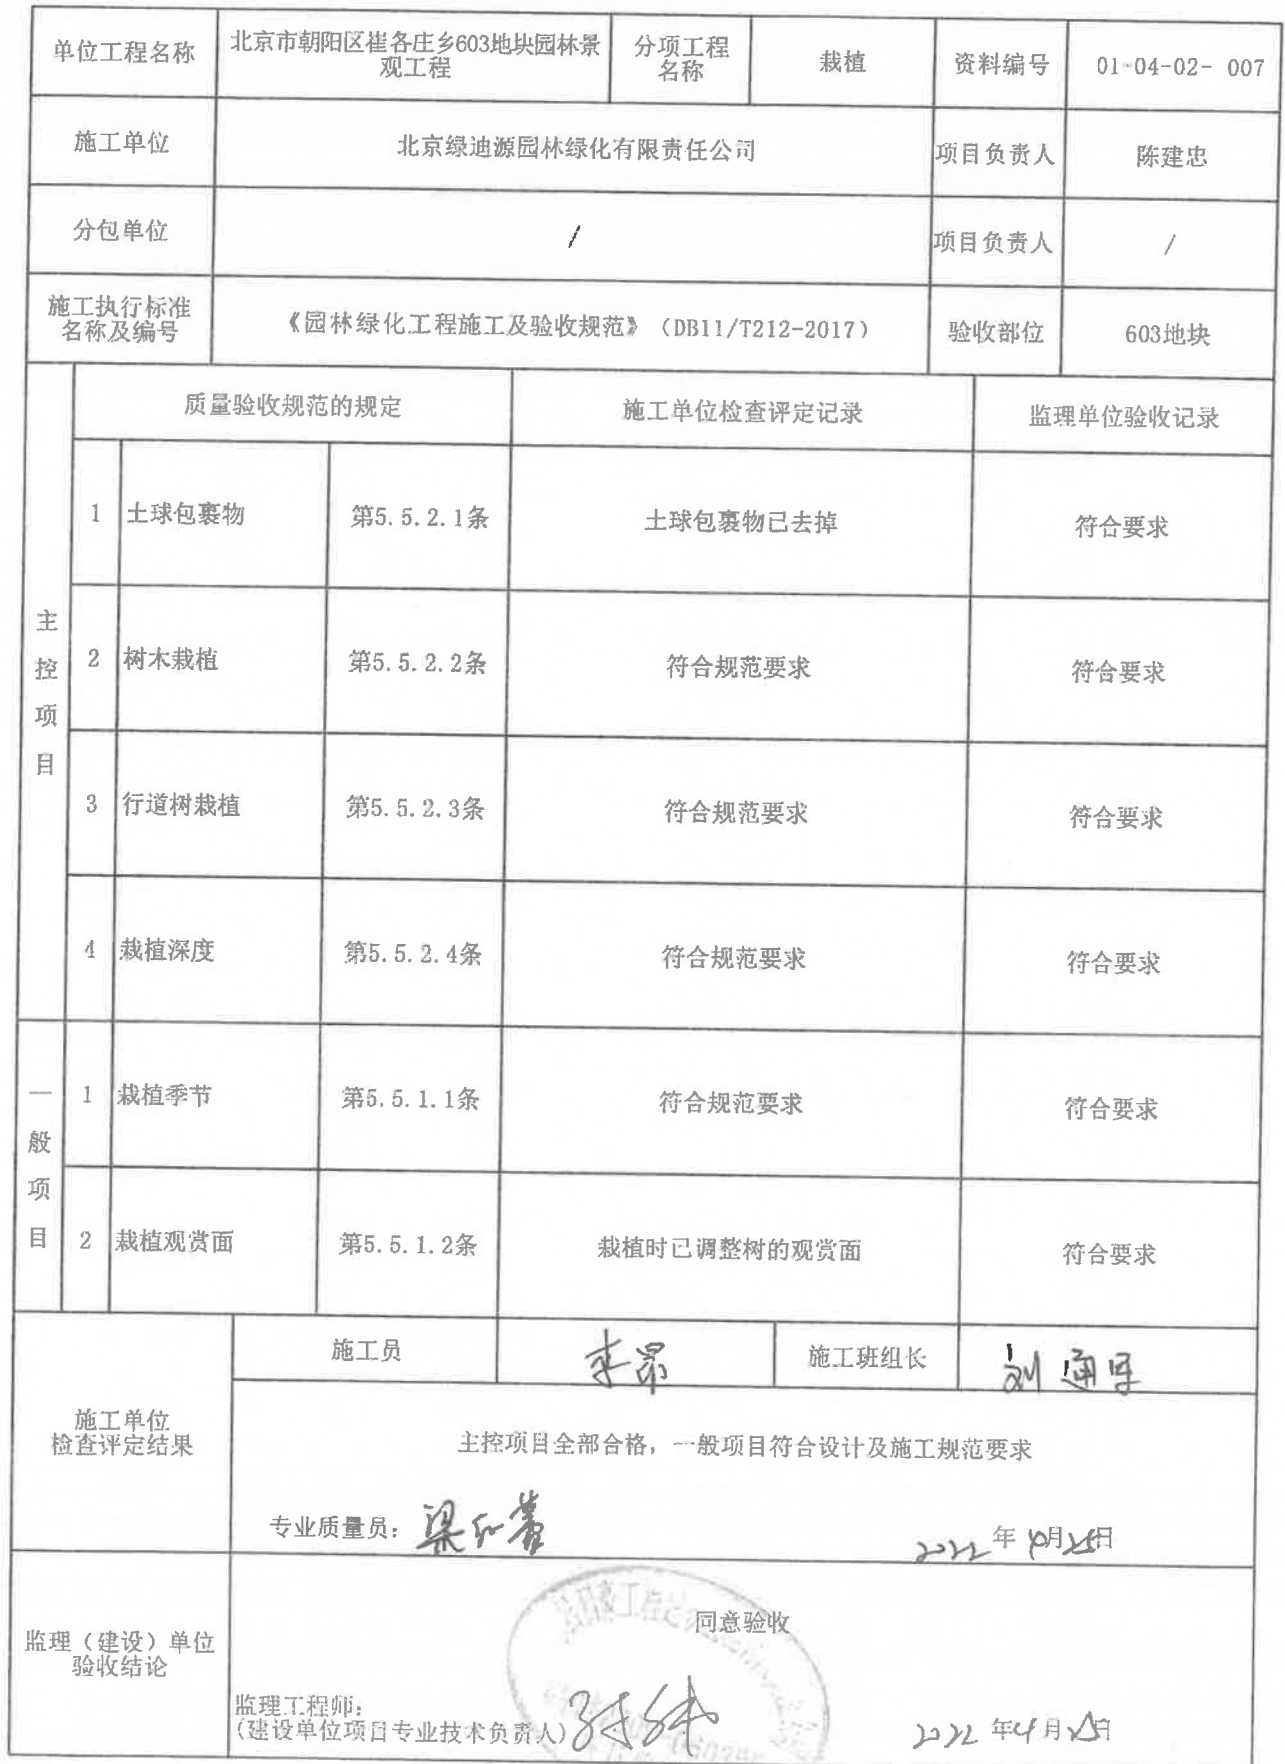 单位工程名称 北京市朝阳区崔各庄乡603地块园林景观工程 分项工程名称 栽植 资料编号 01-04-02- 007
施工单位 北京绿迪源园林绿化有限责任公司 项目负责人 陈建忠
分包单位 / 项目负责人 /
施工执行标准名称及编号 《园林绿化工程施工及验收规范》（DB11/T212-2017） 验收部位 603地块
质量验收规范的规定 施工单位检查评定记录 监理单位验收记录
主控项目
1 土球包裹物 第5.5.2.1条 土球包裹物已去掉 符合要求
2 树木栽植 第5.5.2.2条 符合规范要求 符合要求
3 行道树栽植 第5.5.2.3条 符合规范要求 符合要求
4 栽植深度 第5.5.2.4条 符合规范要求 符合要求
一般项目
1 栽植季节 第5.5.1.1条 符合规范要求 符合要求
2 栽植观赏面 第5.5.1.2条 栽植时已调整树的观赏面 符合要求
施工单位检查评定结果
施工员 李昂 施工班组长 刘通军
主控项目全部合格，一般项目符合设计及施工规范要求
专业质量员： 梁红蕾 2022年4月25日
监理（建设）单位验收结论
同意验收
监理工程师：
（建设单位项目专业技术负责人） 2022年4月25日